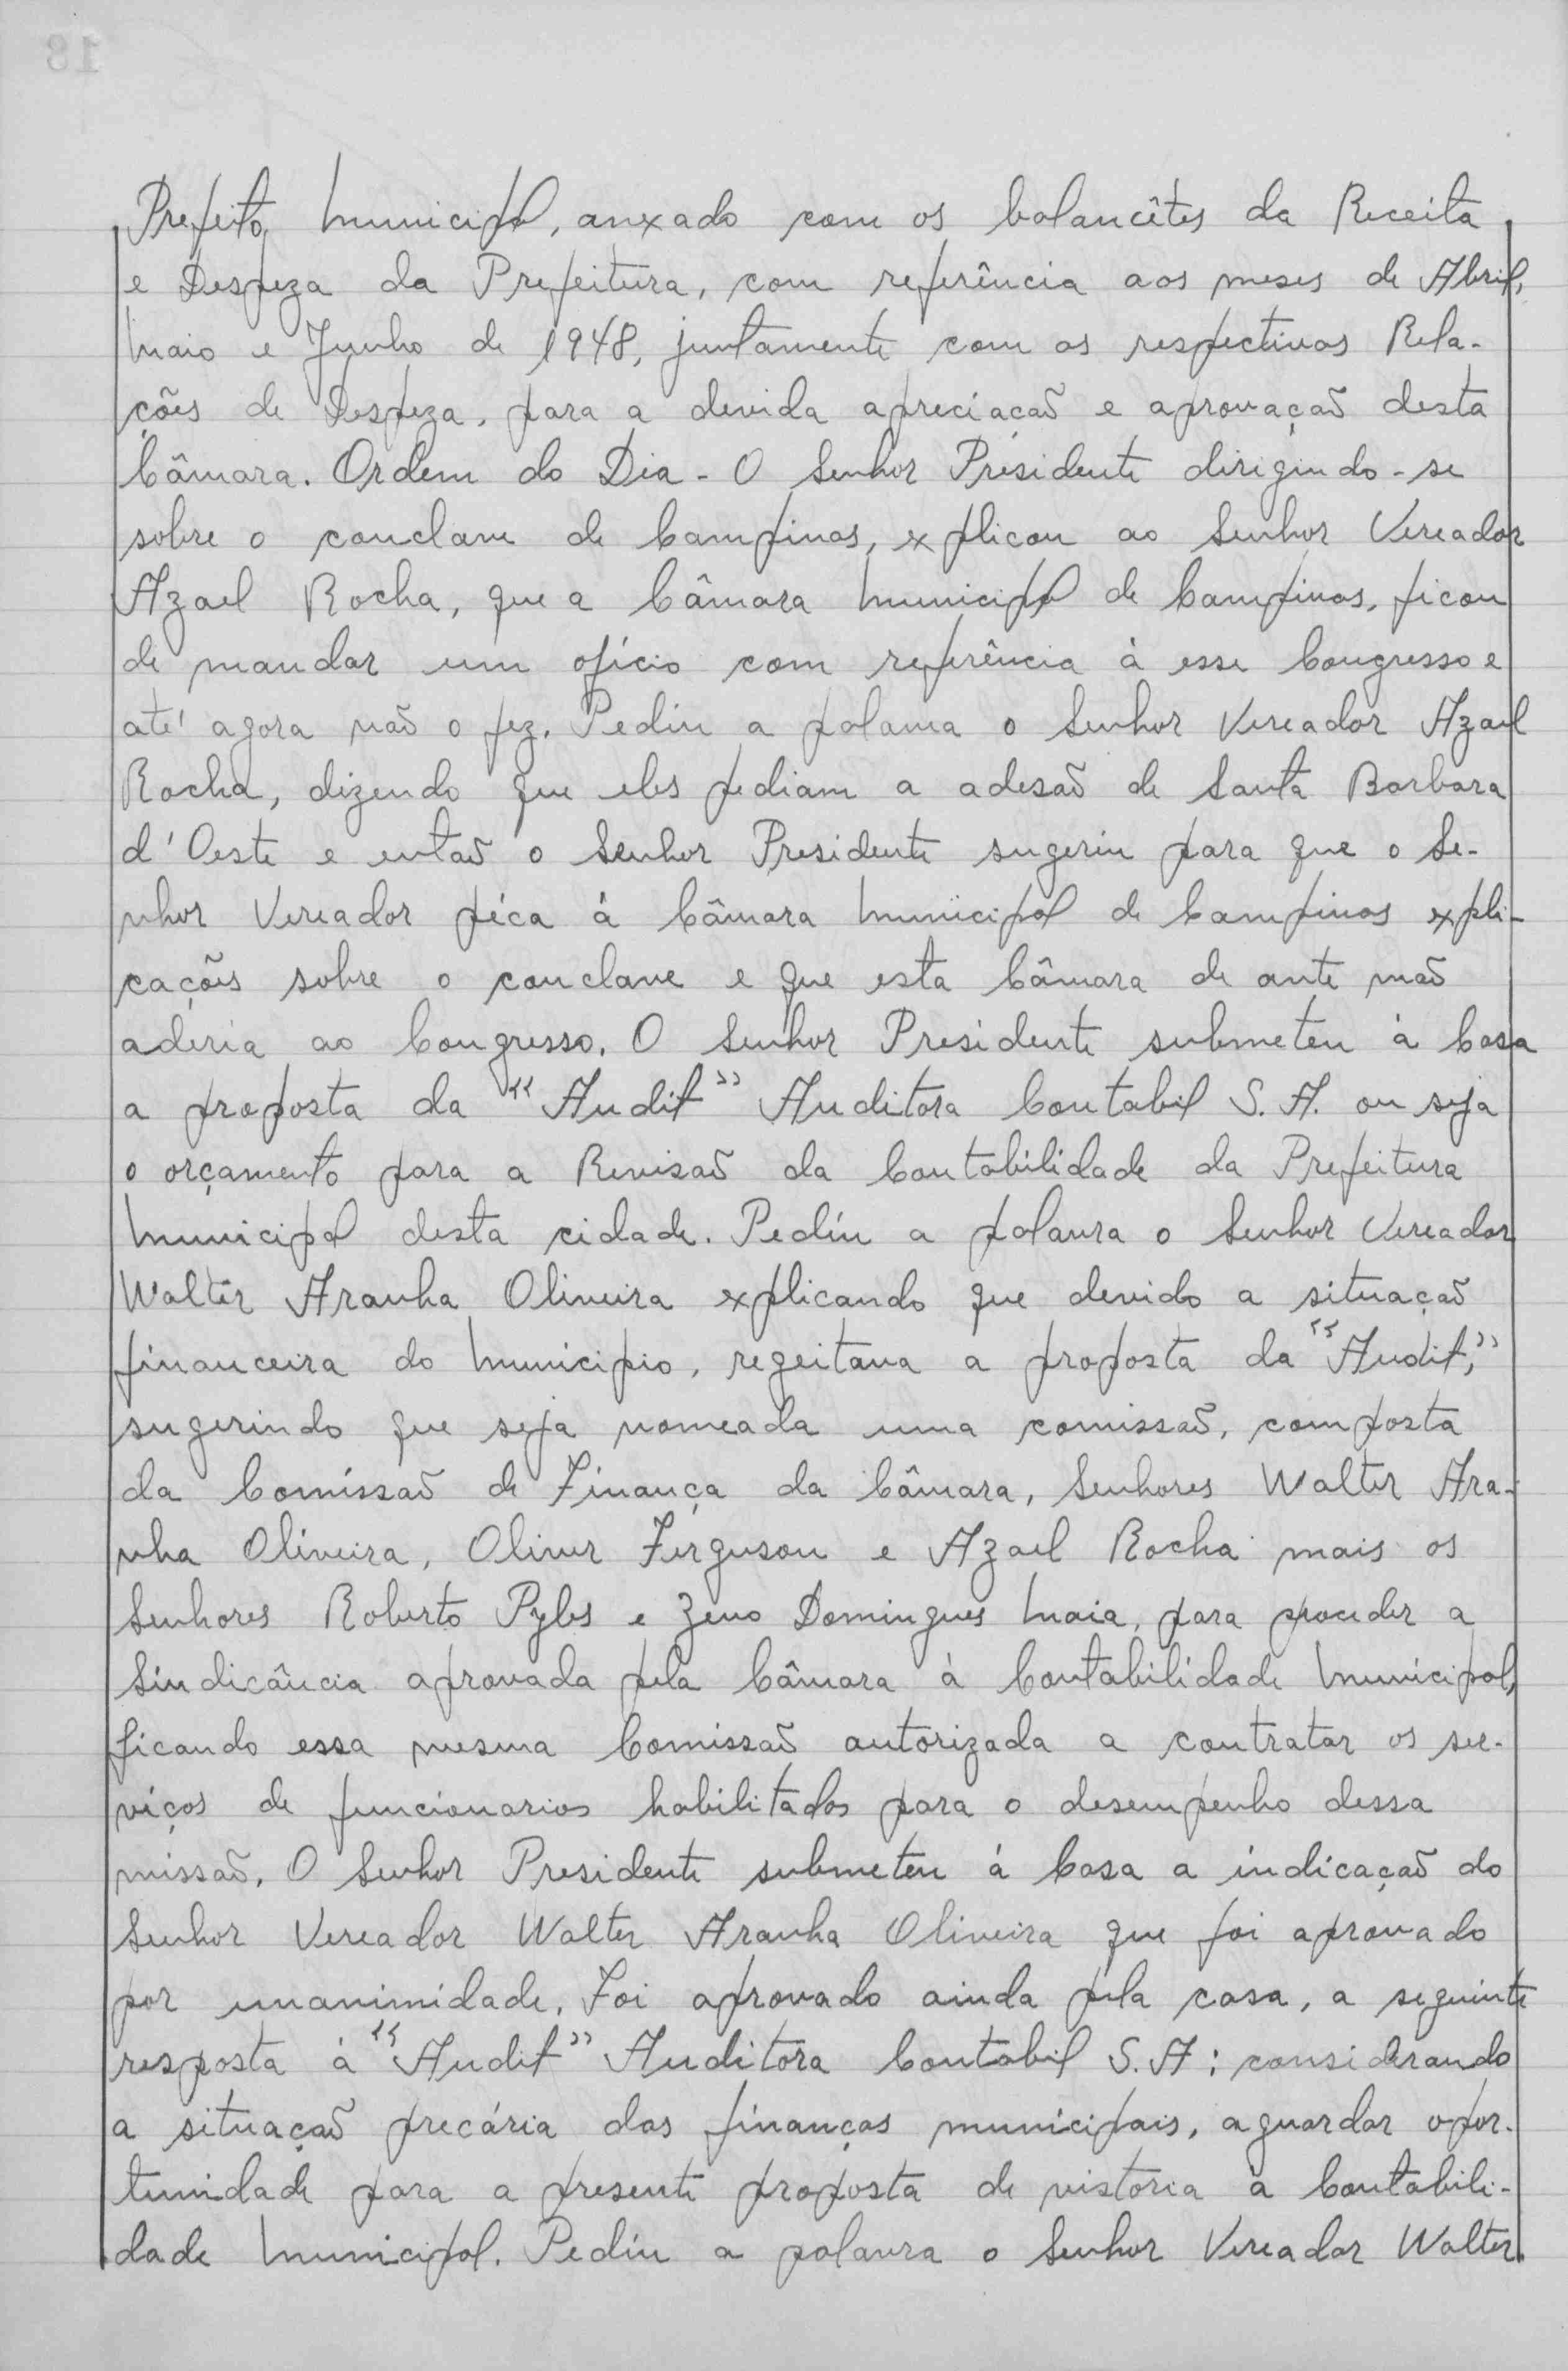 Prefeito Municipal, anxado com os balancêtes da Receita
e Despeza da Prefeitura, com referência aos meses de Abril,
Maio e Junho de 1948, juntamente com as respectivas Rela-
ções de Despeza, para a devida apreciação e aprovação desta
Câmara. Ordem do Dia - O Senhor Presidente dirigindo-se
sobre o conclave de Campinas, explicou ao Senhor Vereador
Azael Rocha, que a Câmara Municipal de Campinas, ficou
de mandar um ofício com referência à esse Congresso e
até agora não o fez. Pediu a palavra o Senhor Vereador Azael
Rocha, dizendo que eles pediam a adesão de Santa Barbara
d'Oeste e então o Senhor Presidente sugeriu para que o Se-
nhor Vereador péca à Câmara Municipal de Campinas expli-
cações sobre o conclave e que esta Câmara de ante mão
aderia ao Congresso. O Senhor Presidente submeteu à Casa
a proposta da "Audit" Auditora Contabil S.A. ou seja
o orçamento para a Revisão da Contabilidade da Prefeitura
Municipal desta cidade. Pediu a palavra o Senhor Vereador
Walter Aranha Oliveira explicando que devido a situação
financeira do Municipio, regeitava a proposta da "Audit,"
sugerindo que seja nomeada uma comissão, composta
da Comissão de Finança da Câmara, Senhores Walter Ara-
nha Oliveira, Oliver Ferguson e Azael Rocha mais os
Senhores Roberto Pyles e Zeno Domingues Maia, para proceder a
Sindicância aprovada pela Câmara à Contabilidade Municipal,
ficando essa mesma Comissão autorizada a contratar os ser-
viços de funcionarios habilitados para o desempenho dessa
missão. O Senhor Presidente submeteu á Casa a indicação do
Senhor Vereador Walter Aranha Oliveira que foi aprovado
por unanimidade. Foi aprovado ainda pela casa, a seguinte
resposta à "Audit" Auditora Contabil S.A: considerando
a situação precária das finanças municipais, aguardar opor-
tunidade para a presente proposta de vistoria a Contabili-
dade Municipal. Pediu a palavra o Senhor Vereador Walter